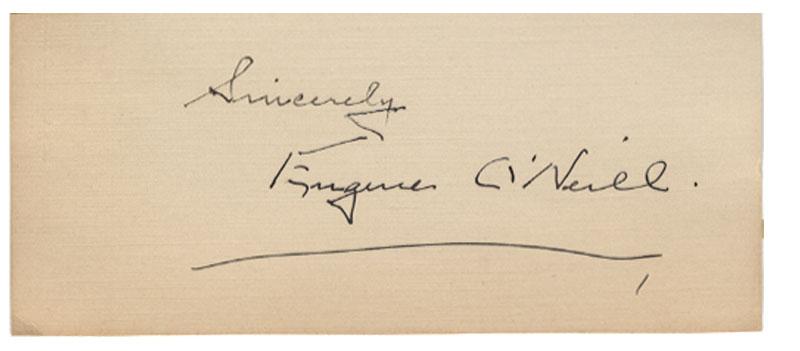 Sincerely
Eugene O'Neill.